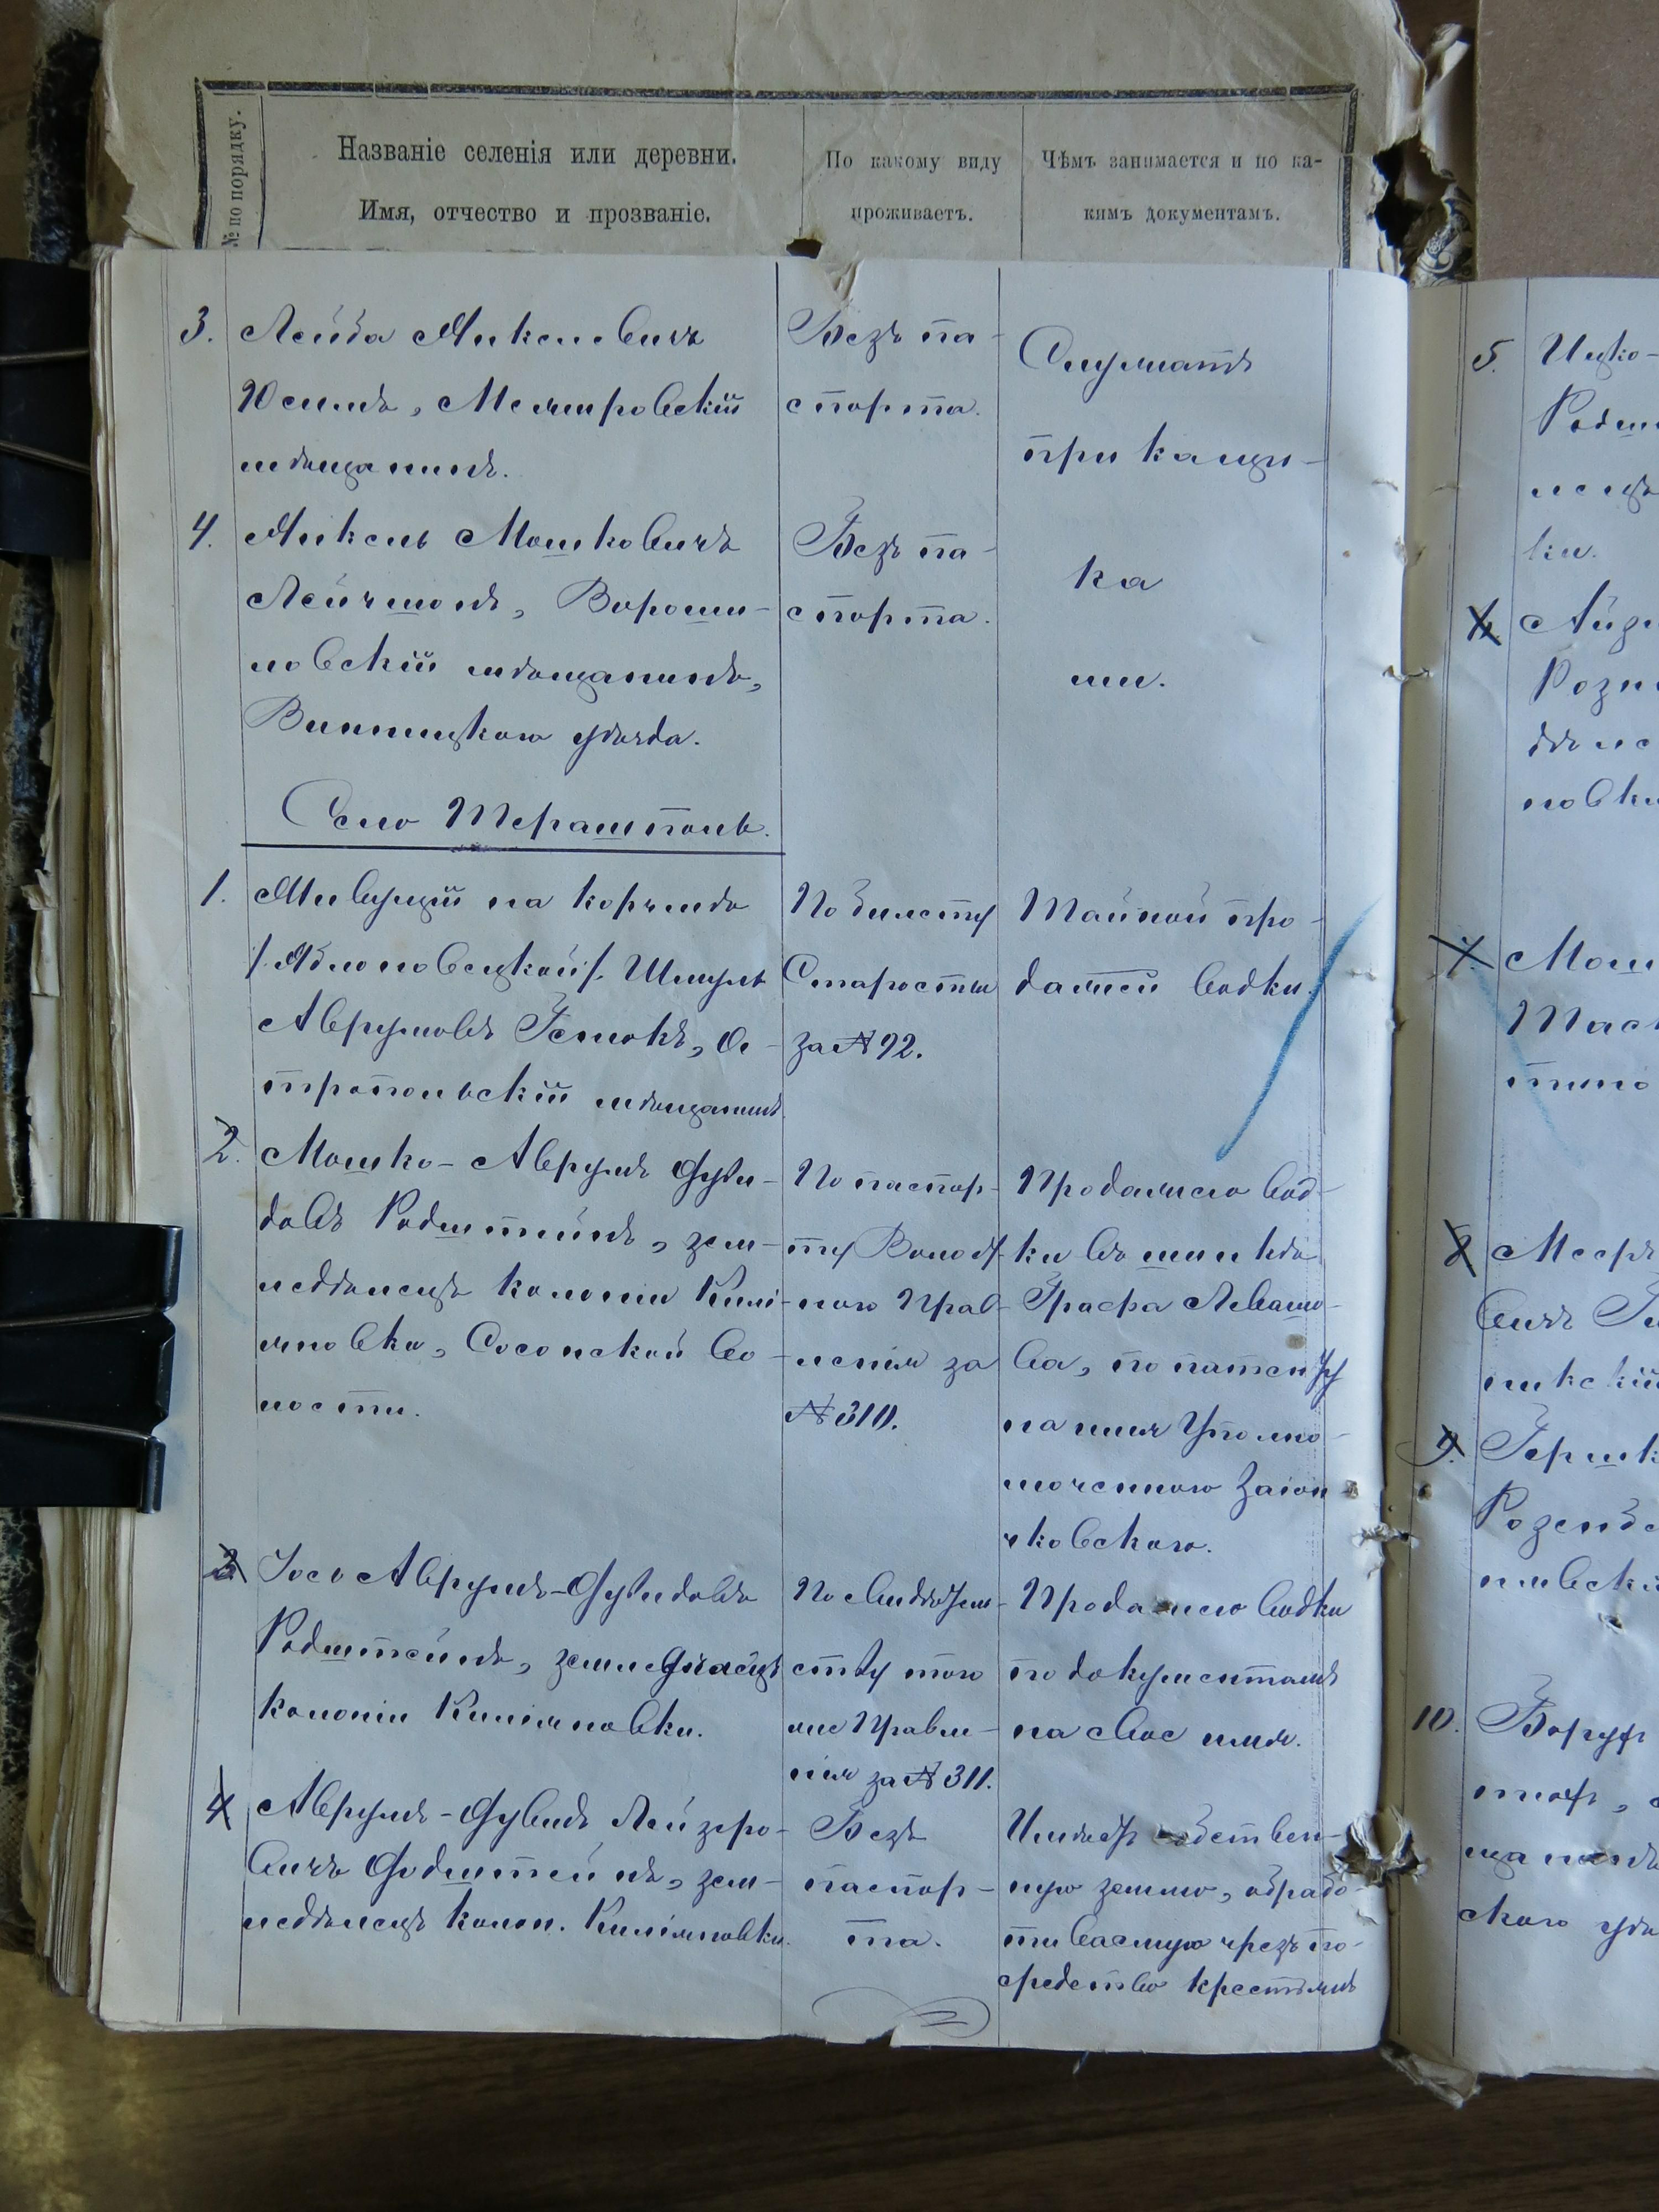 № по порядку.
Названіе селенія или деревни.
Имя, отчество и прозваніе.
По какому виду
проживаетъ.
Чѣмъ занимается и по ка-
кимъ документамъ.
3.
Лейба Янкелевичъ
Юсимъ, Межировскій
мѣщанинъ.
Безъ па-
спорта.
Служатъ
прикащи-
ка
ми.
4.
Янкель Мошковичъ
Лейчманъ, Вороши-
ловскій мѣщанинъ,
Винницкого уѣзда.
Безъ па-
спорта.
Село Терашполь.
1.
Живущій на корчмѣ
/Яблоновецкой/ Шмуль
Аврумовъ Гемокъ, О-
стропольскій мѣщанинъ
По билету
Старосты
за № 92.
Тайной про-
дажей водки.
2.
Мошко-Аврумъ Дуви-
довъ Родштейнъ, зем-
ледѣлецъ колоніи Кили-
яновки, Сосонской во-
лости.
По паспор-
ту Волост-
ного Прав-
ленія за
№ 310.
Продажею вод-
ки въ шинкѣ
Графа Левашо-
ва, по патенту
на имя Уполно-
моченного Заіон-
чковского.
3
Іось Аврумъ-Дувидовъ
Родштейнъ, земледѣлецъ
колоніи Киліяновки.
По свидѣтель-
ству того
же Правле-
нія за № 311.
Продажею водки
по документамъ
на свое имя.
4
Аврумъ-Дувидъ Лейзеро-
вичъ Родштейнъ, зем-
ледѣлецъ колон. Киліяновки.
Безъ
паспор-
та.
Имѣетъ собствен-
ную землю, обрабо-
тываемую чрезъ по-
средство крестьянъ
5.
Ицко-
ки.
7.
8
9.
10.
Борух